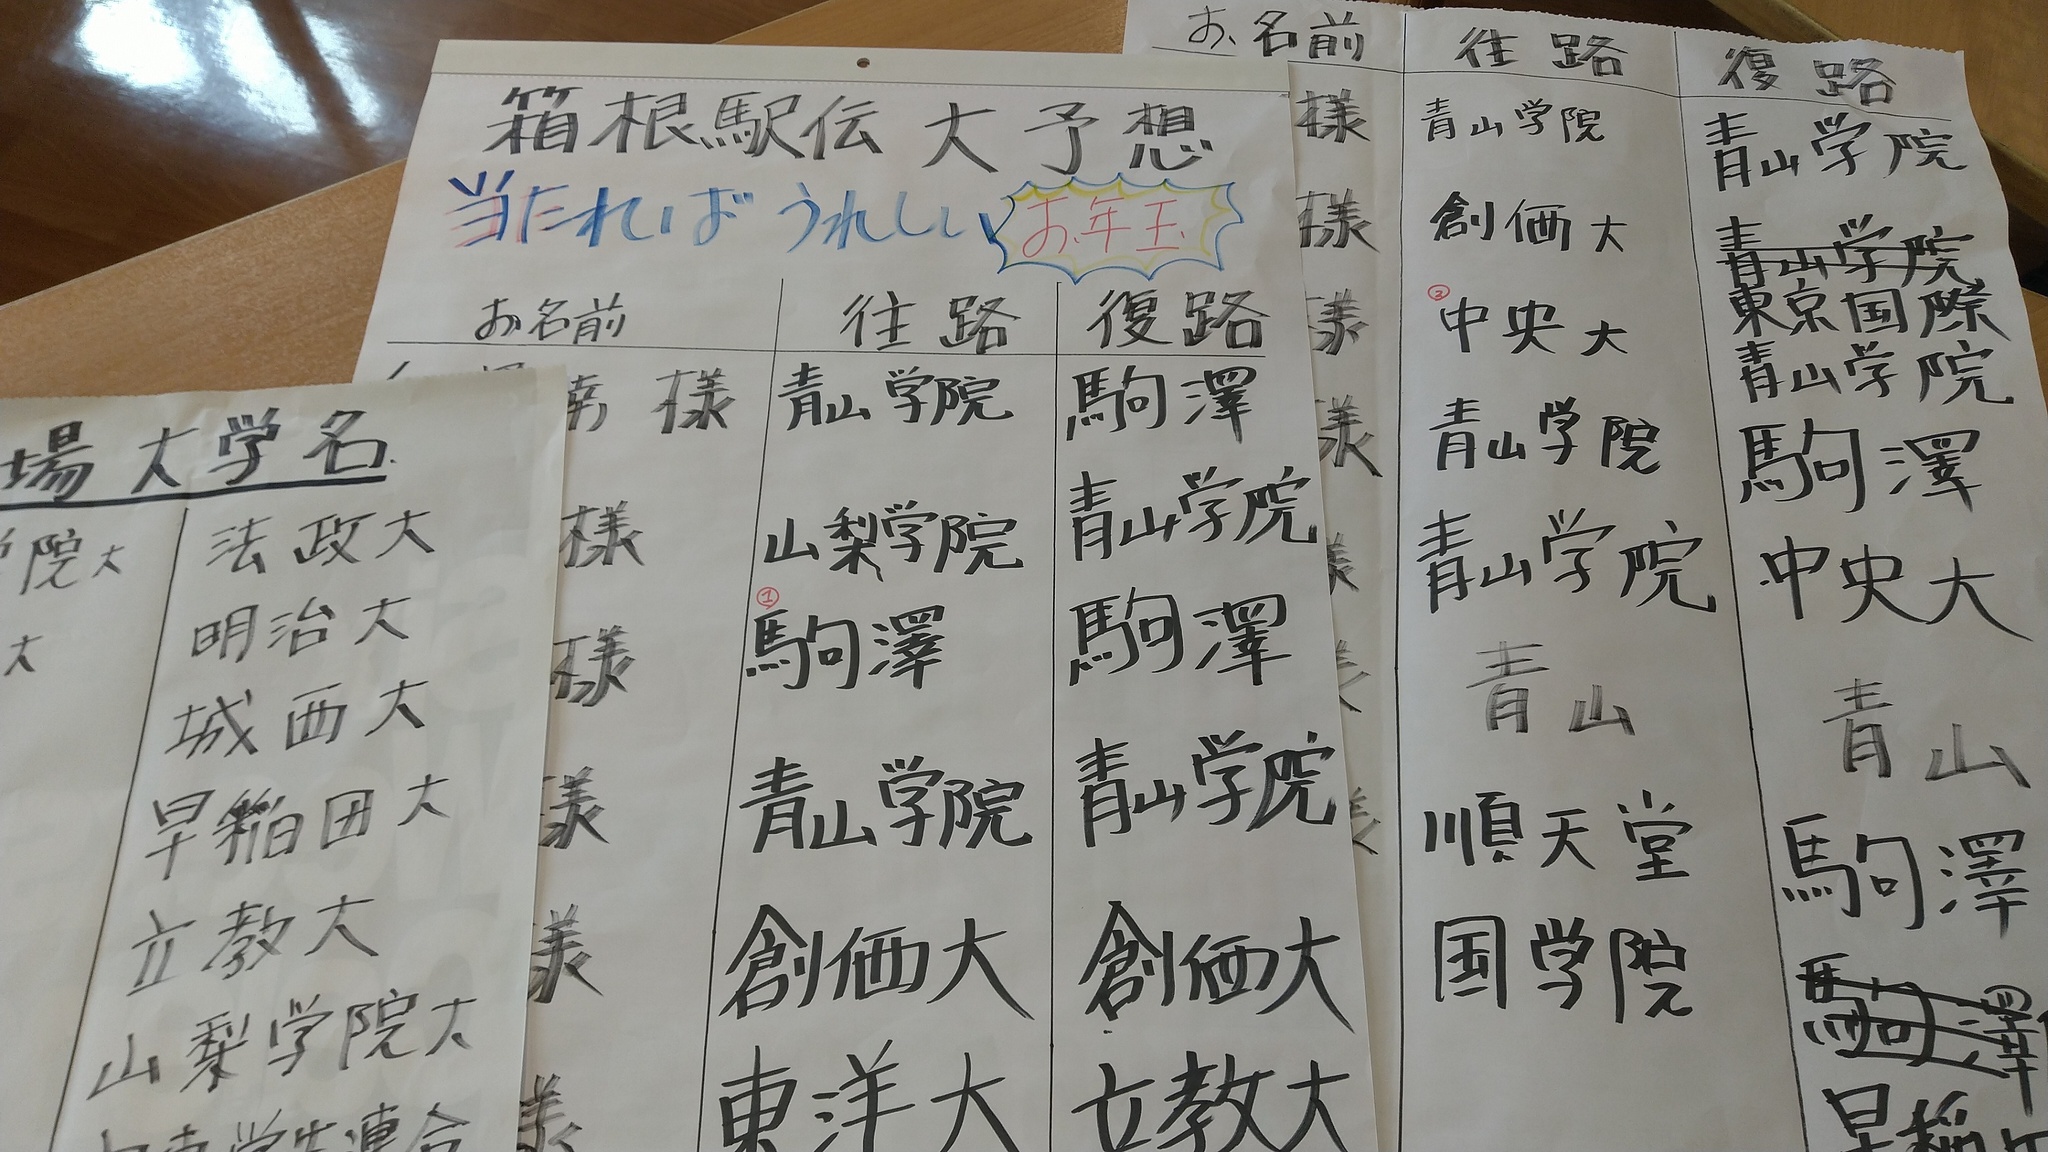 箱根駅伝 大予想
当たればうれしい お年玉
お名前 往路 復路
様 青山学院 駒澤
様 山梨学院 青山学院
①
様 駒澤 駒澤
様 青山学院 青山学院
様 創価大 創価大
様 東洋大 立教大
お名前 往路 復路
様 青山学院 青山学院
様 創価大 青山学院
東京国際
②
様 中央大 青山学院
様 青山学院 駒澤
様 青山学院 中央大
様 青山 青山
様 順天堂 駒澤
国学院 駒澤
早稲
場大学名
学院大 法政大
大 明治大
城西大
早稲田大
立教大
山梨学院大
学生連合